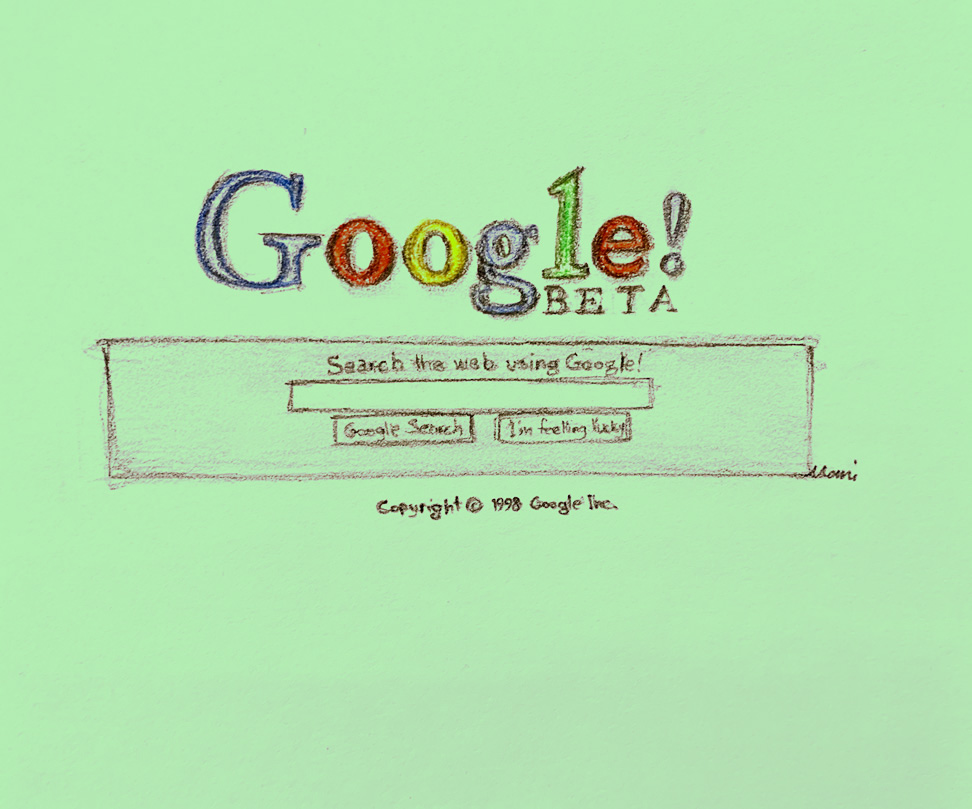 Google!
BETA
Search the web using Google!
Google Search
I'm feeling lucky
Copyright © 1998 Google Inc.